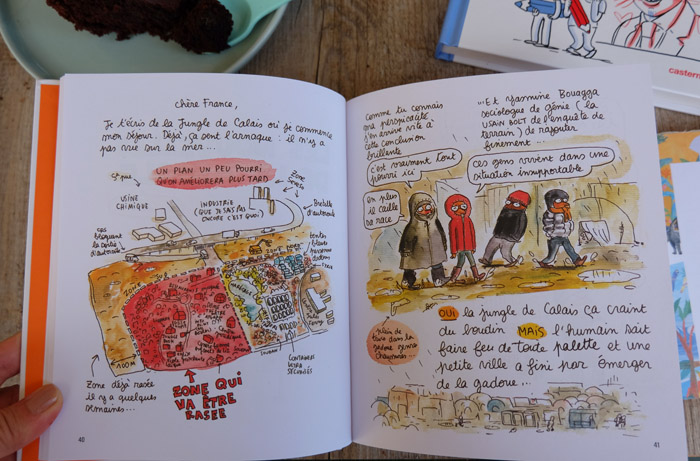 casterm
chère France,
Je t'écris de la Jungle de Calais où je commence
mon séjour. Déjà, ça sent l'arnaque : il n'y a
pas vue sur la mer ...
UN PLAN UN PEU POURRI
QU'ON AMÉLIORERA PLUS TARD
USINE
CHIMIQUE
INDUSTRIE
(QUE JE SAIS PAS
ENCORE C'EST QUOI)
Zone
Bretelle
d'autoroute
CRS
bloquant
la sortie
d'autoroute
100M
Zone déjà rasée
il y a quelques
semaines...
ZONE QUI
VA ÊTRE
RASÉE
CONTAINERS
SÉCURISÉS
40
Comme tu connais
ma perspicacité,
j'en arrive vite à
cette conclusion
brillante
"C'est vraiment tout
pourri ici"
en plus
il caille
sa race
...Et Yasmine Bouagga
sociologue de génie (la
USAIN BOLT de l'enquête de
terrain) de rajouter
finement...
Ces gens vivent dans une
situation insupportable.
OUI la jungle de Calais ça craint
du boudin MAIS l'humain sait
faire feu de toute palette et une
petite ville a fini par émerger
de la gadoue...
plein de
trucs dans la
gadoue genre
chaussures...
41